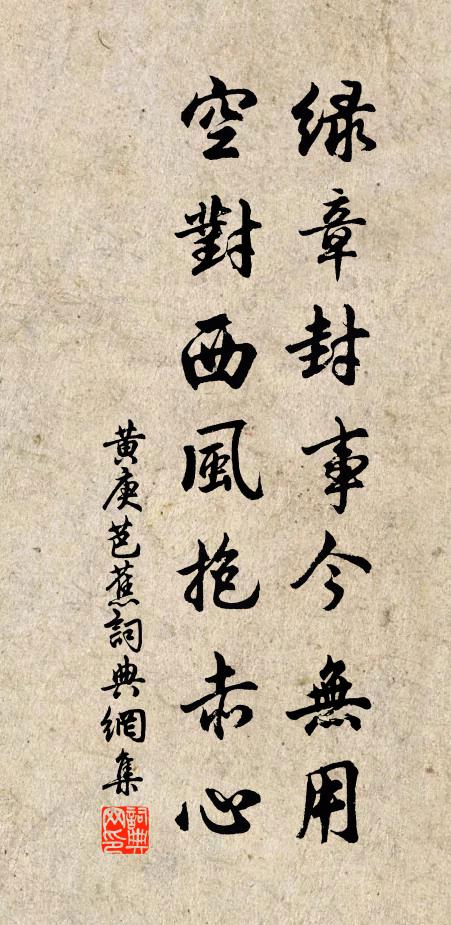 緑章封事今無用
空對西風抱赤心
黄庚芭蕉詞典網集
詞典网印